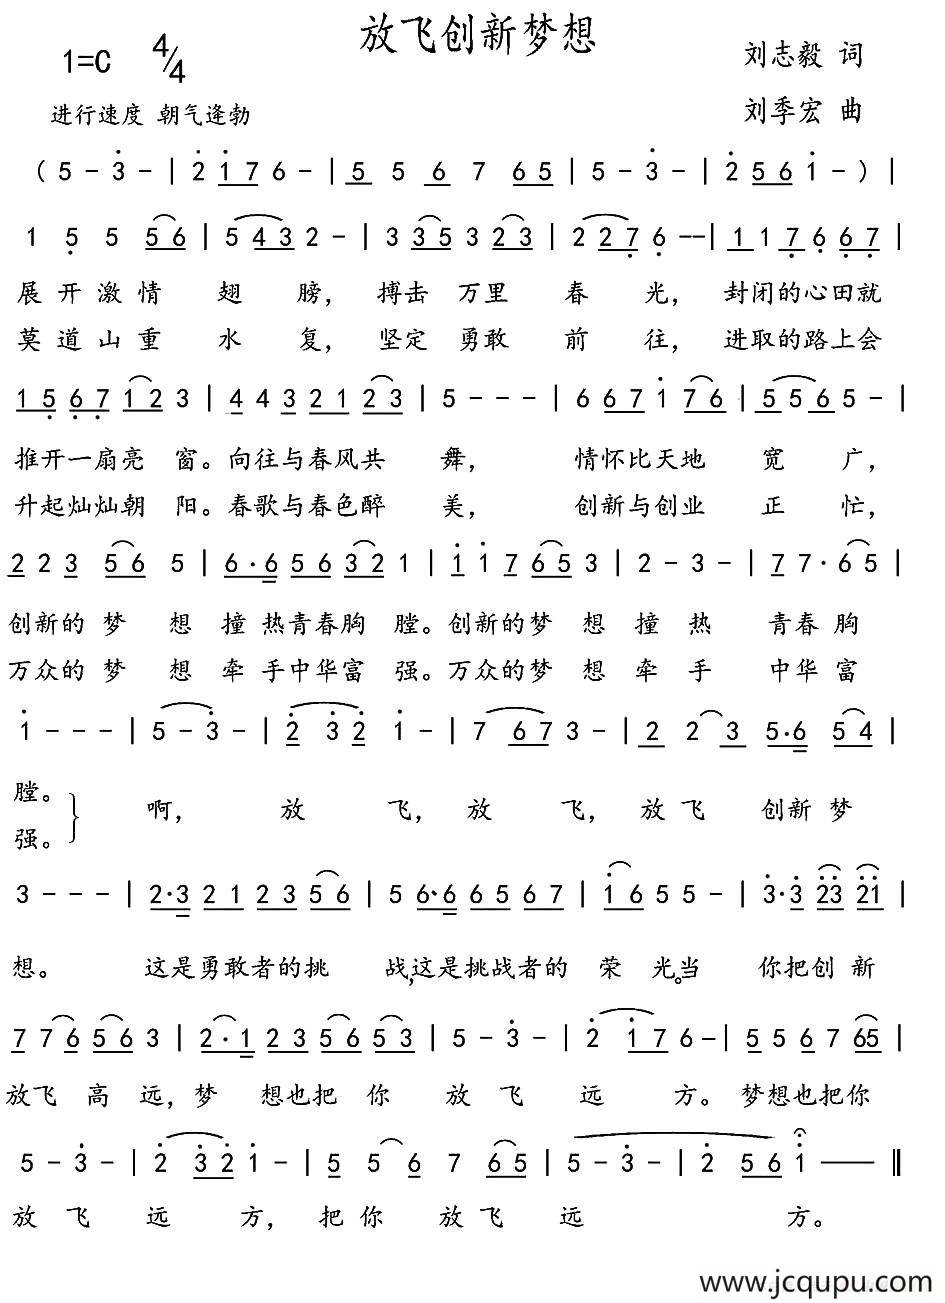 放飞创新梦想
1=C 4/4
刘志毅 词
进行速度 朝气逢勃
刘季宏 曲
( 5 - 3 - | 2 1 7 6 - | 5 5 6 7 6 5 | 5 - 3 - | 2 5 6 1 - ) |
1 5 5 5 6 | 5 4 3 2 - | 3 3 5 3 2 3 | 2 2 7 6 -- | 1 1 7 6 6 7 |
展 开 激 情 翅 膀， 搏击 万里 春 光， 封闭的心田就
莫 道 山 重 水 复， 坚定 勇敢 前 往， 进取的路上会
1 5 6 7 1 2 3 | 4 4 3 2 1 2 3 | 5 - - - | 6 6 7 1 7 6 | 5 5 6 5 - |
推开一扇亮 窗。向往与春风共 舞， 情怀比天地 宽 广，
升起灿灿朝 阳。春歌与春色醉 美， 创新与创业 正 忙，
2 2 3 5 6 5 | 6 · 6 5 6 3 2 1 | 1 1 7 6 5 3 | 2 - 3 - | 7 7 · 6 5 |
创新的 梦 想 撞 热青春胸 膛。创新的梦 想 撞 热 青春 胸
万众的 梦 想 牵 手中华富 强。万众的梦 想 牵 手 中华 富
1 - - - | 5 - 3 - | 2 3 2 1 - | 7 6 7 3 - | 2 2 3 5·6 5 4 |
膛。
强。
啊， 放 飞， 放 飞， 放 飞 创新 梦
3 - - - | 2·3 2 1 2 3 5 6 | 5 6·6 6 5 6 7 | 1 6 5 5 - | 3·3 23 21 |
想。 这是勇敢者的挑 战，这是挑战者的 荣 光。当 你把创 新
7 7 6 5 6 3 | 2 · 1 2 3 5 6 5 3 | 5 - 3 - | 2 1 7 6 - | 5 5 6 7 65 |
放飞 高 远，梦 想也把 你 放 飞 远 方。梦想也把你
5 - 3 - | 2 3 2 1 - | 5 5 6 7 6 5 | 5 - 3 - | 2 5 6 1 —— ‖
放 飞 远 方， 把 你 放 飞 远 方。
www.jcqupu.com